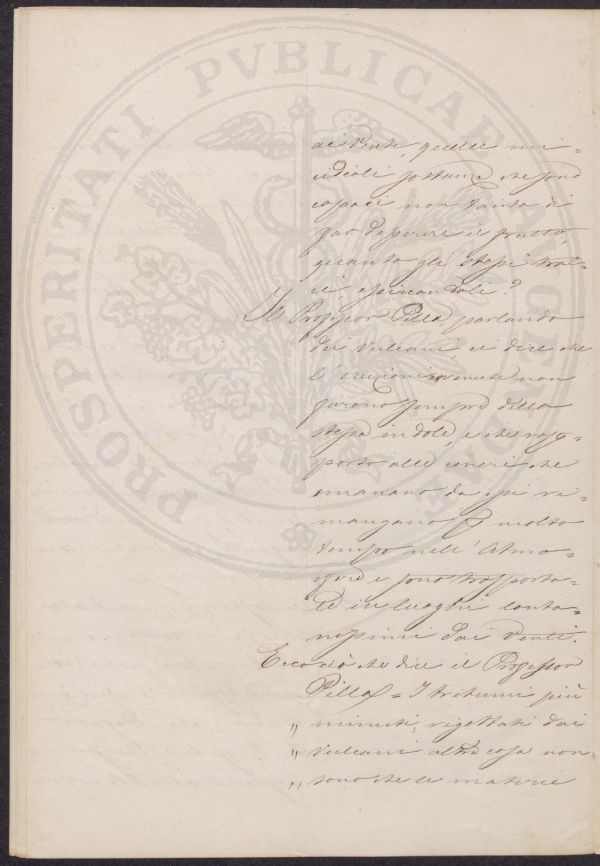 PROSPERITATI PVBLICAE AVGENDAE
dai Venti, quelle mi=
cidiali sostanze che sono
capaci non tanto di
far deperire il frutto,
quanto gli stessi tral=
ci, essiccandoli?
Il Professor Pilla, parlando
dei Vulcani, ci dice che
l'eruzioni avvenute non
furono sempre della
stessa indole, e che rap=
porto alle ceneri che
emanano da essi ri=
mangano p molto
tempo nell' Atmo=
sfera e sono trasporta=
te in luoghi lonta=
nissimi dai Venti.
Ecco ciò che dice il Professor
Pilla = I tritumi più
„ minuti, rigettati dai
„ Vulcani altra cosa non
„ sono che le materie